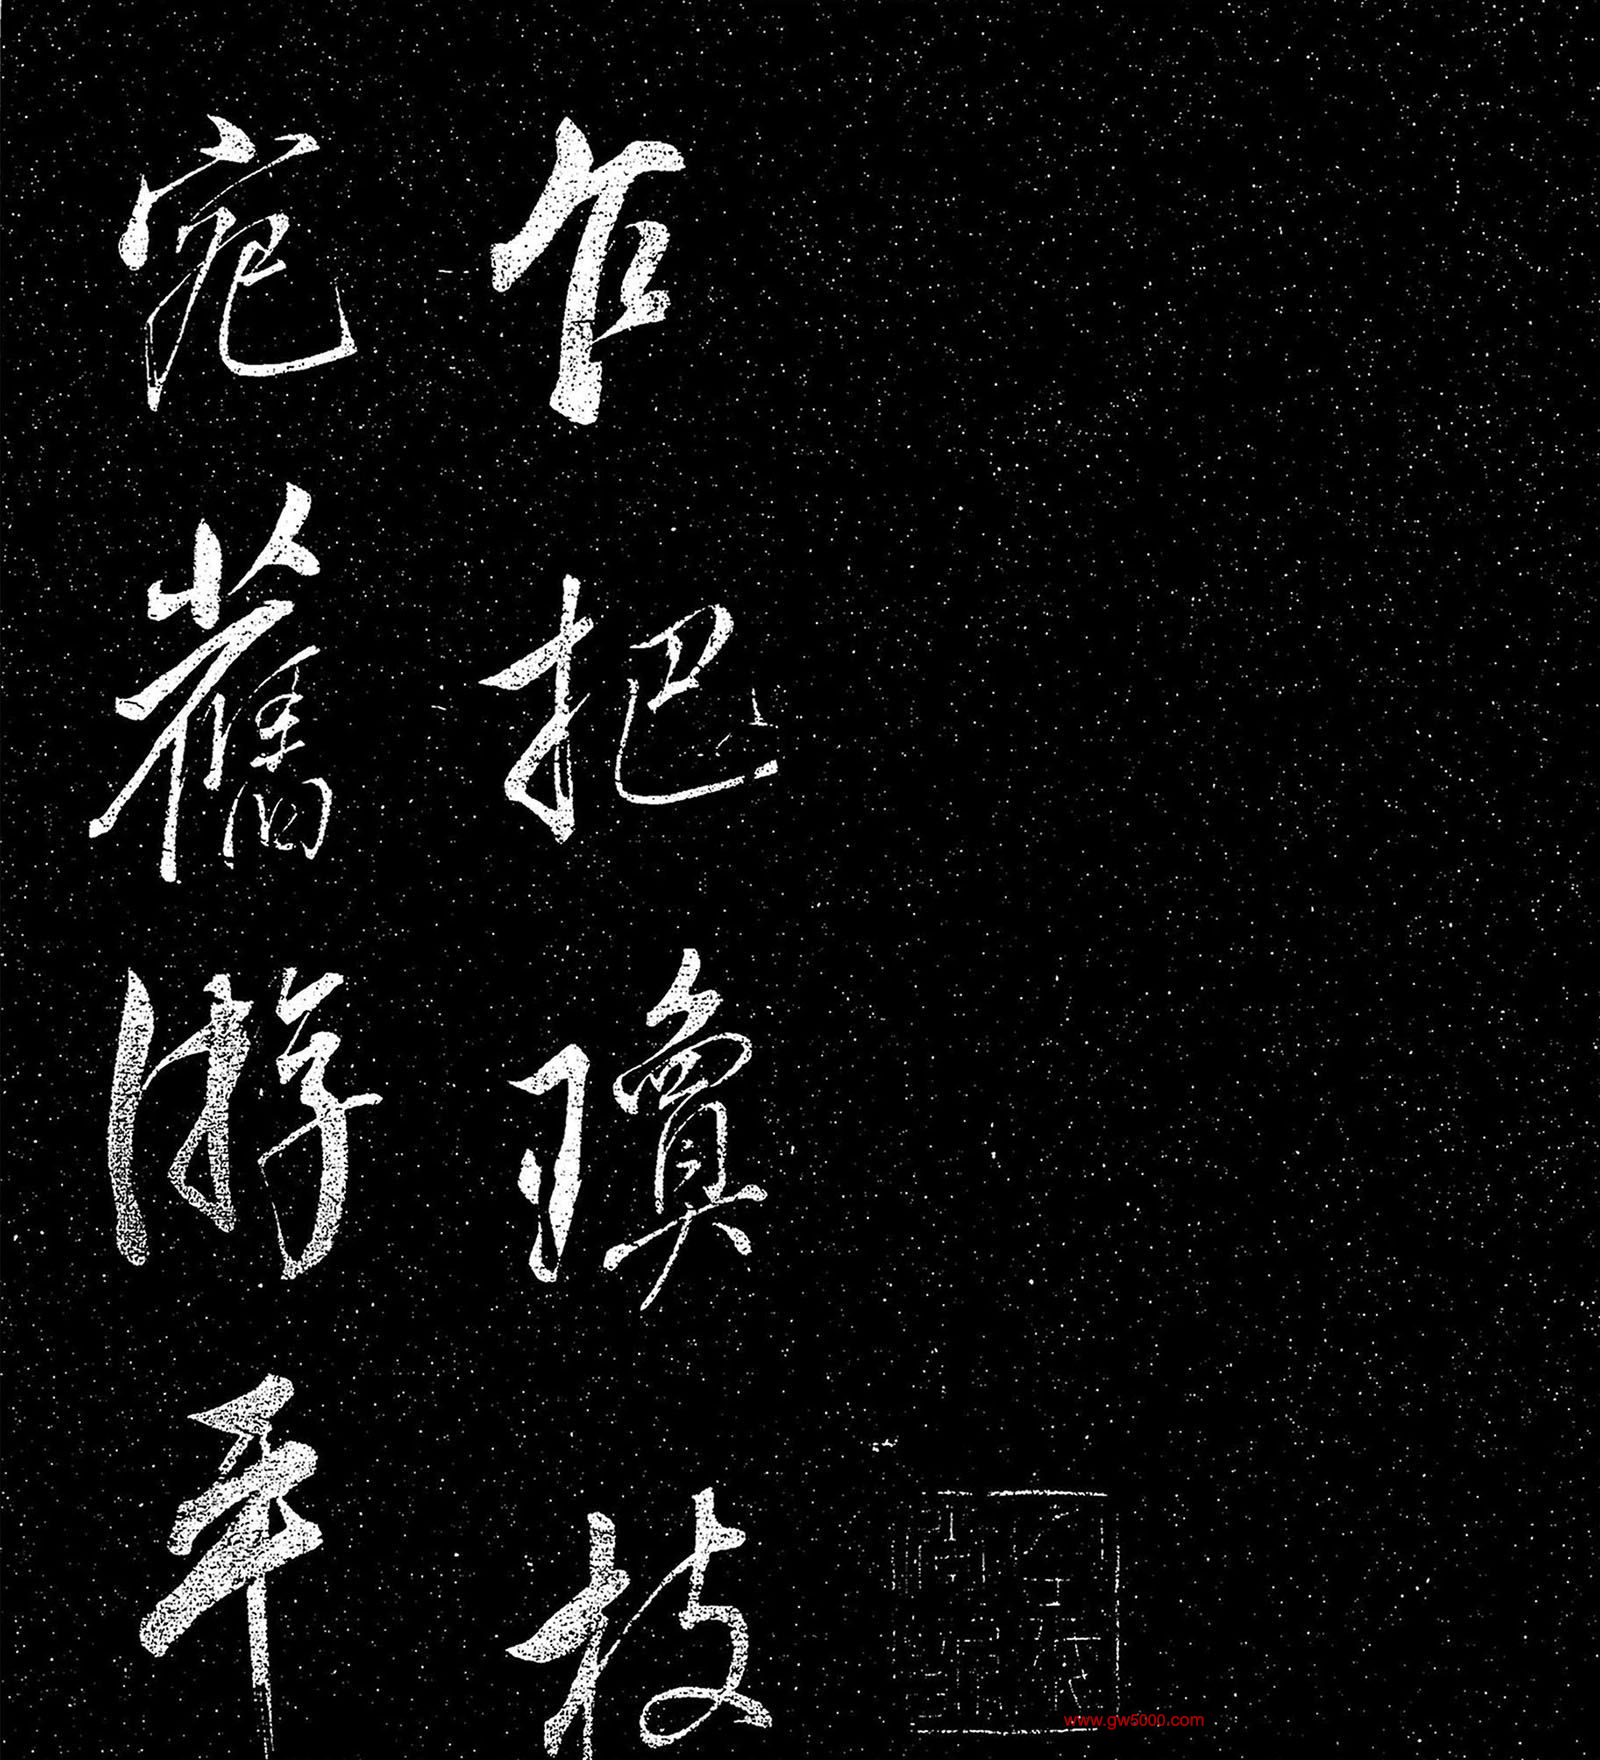 乍把瓊枝
宛舊游年
www.gw5000.com